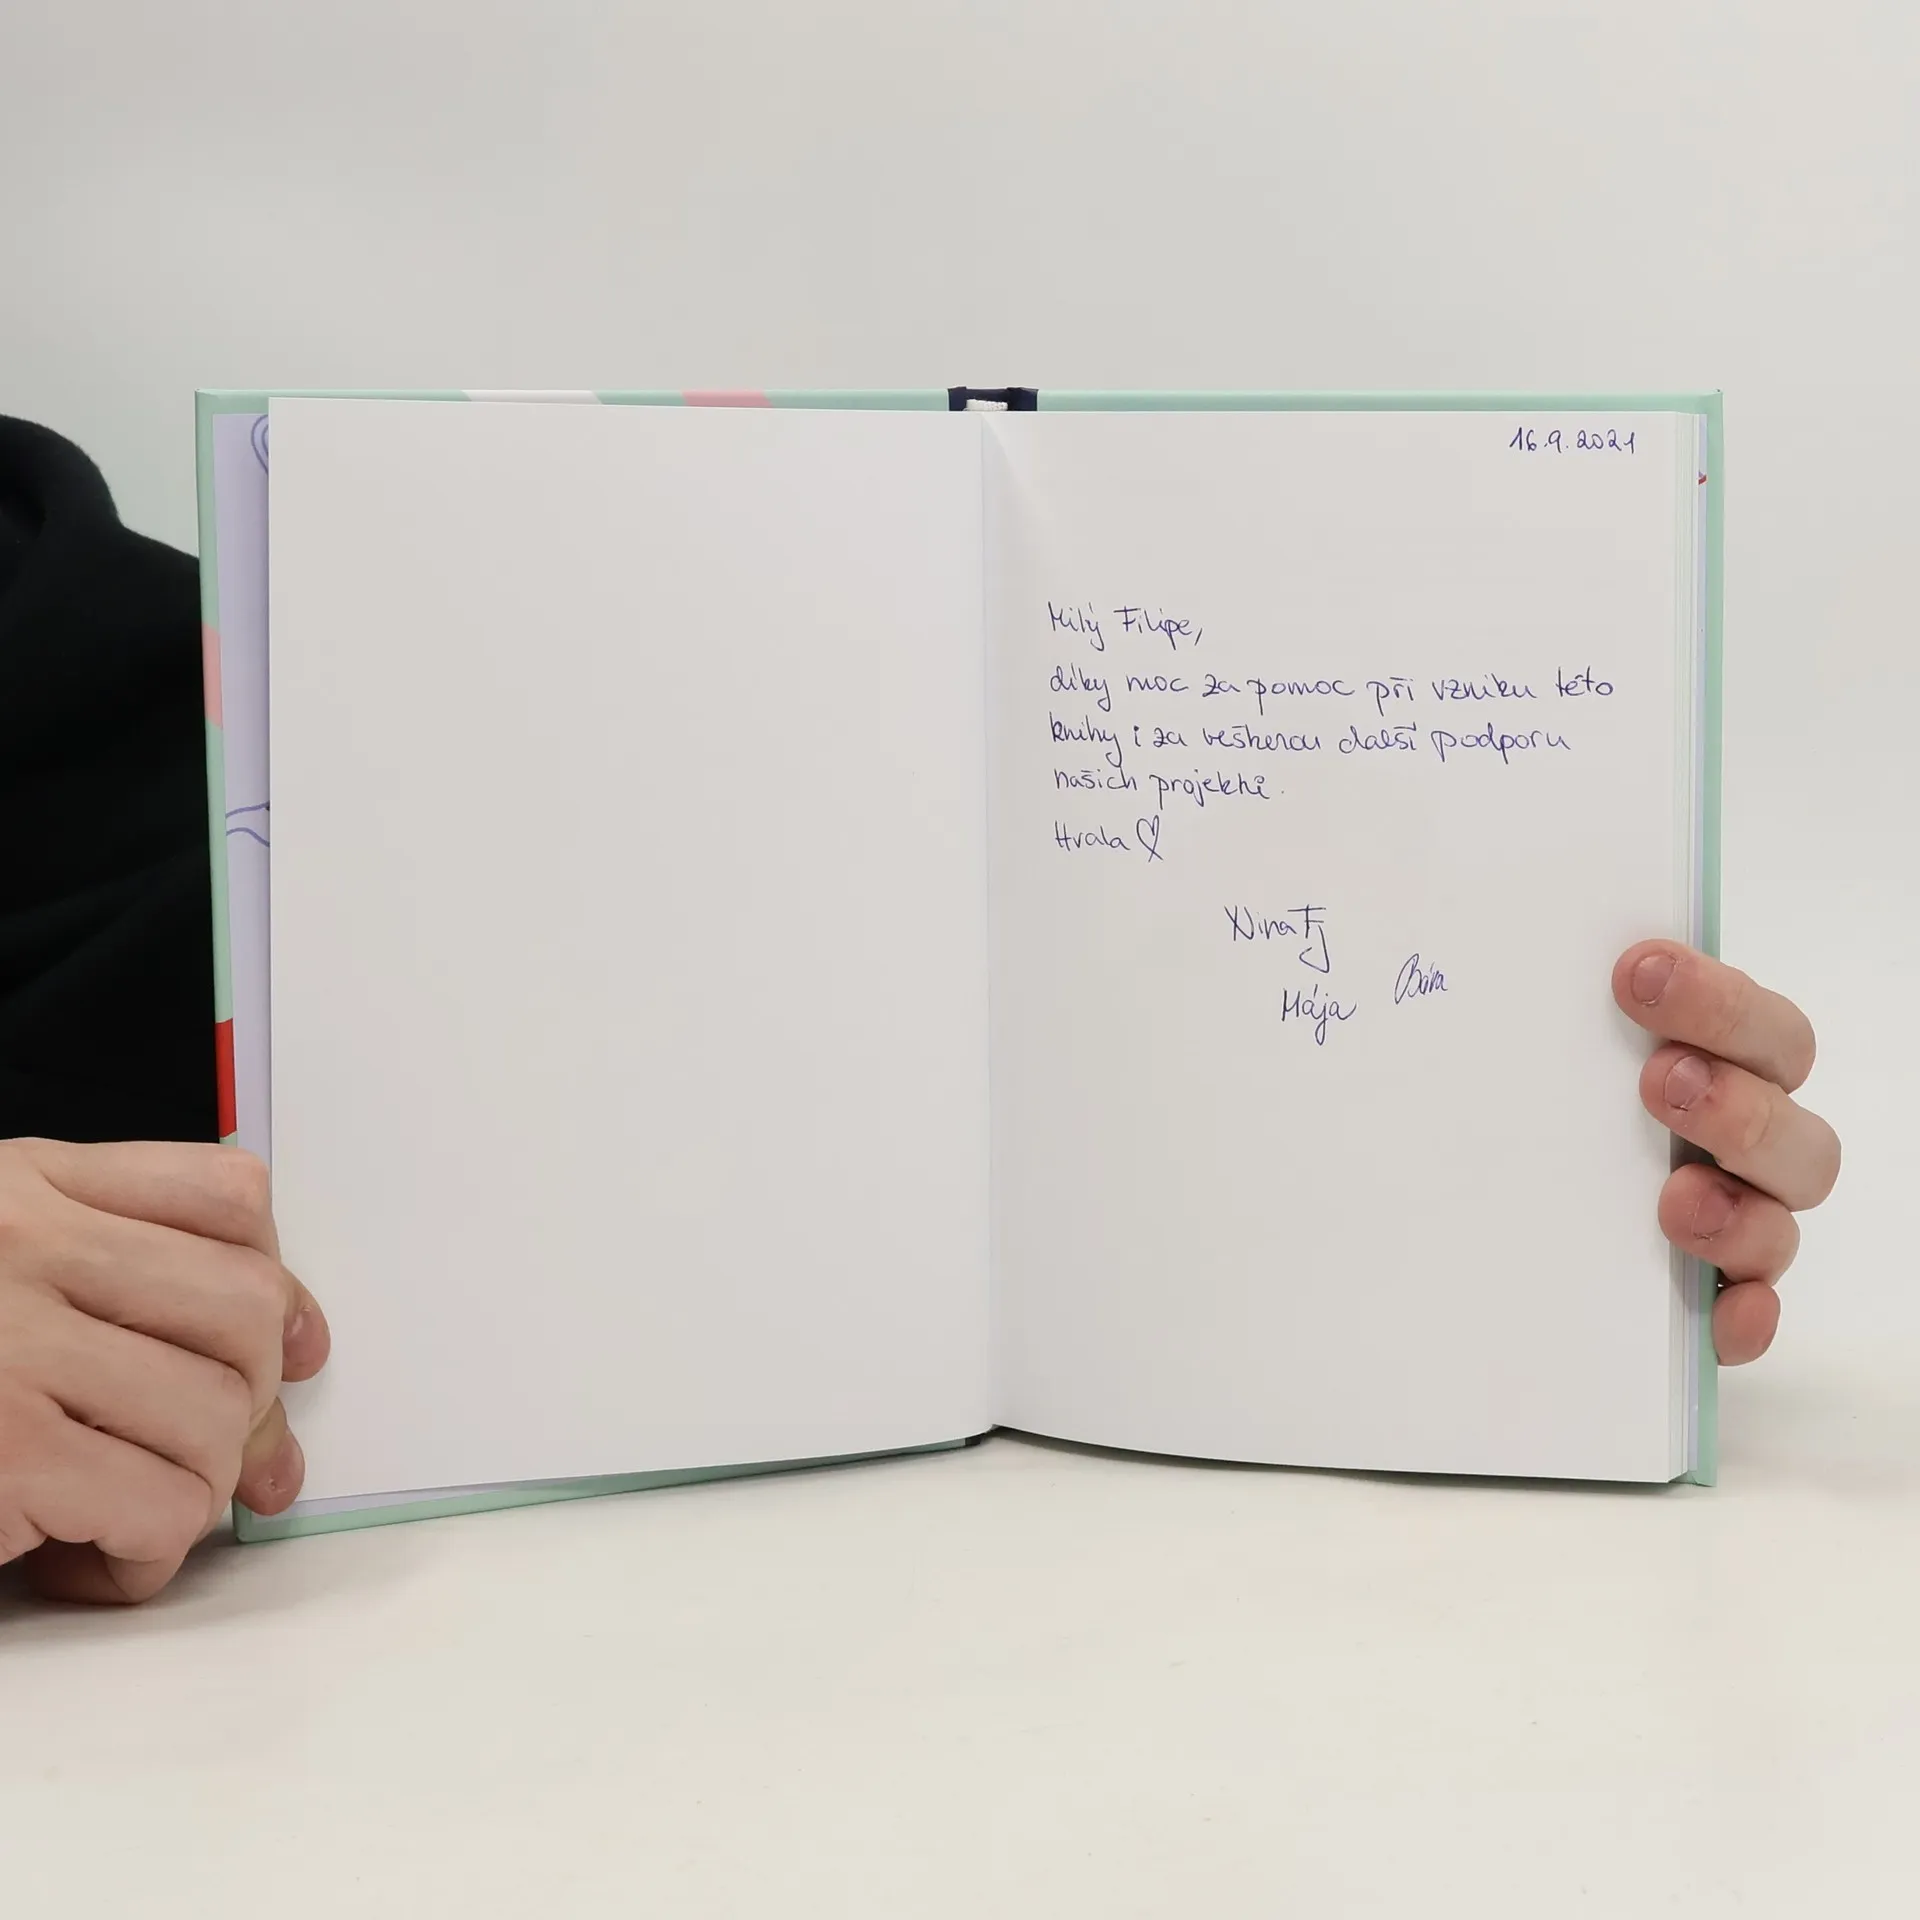 16.9.2021
Milý Filipe,
díky moc za pomoc při vzniku této
knihy i za veškerou další podporu
našich projektů.
Hvala ♡
Nina Fj
Bára
Mája